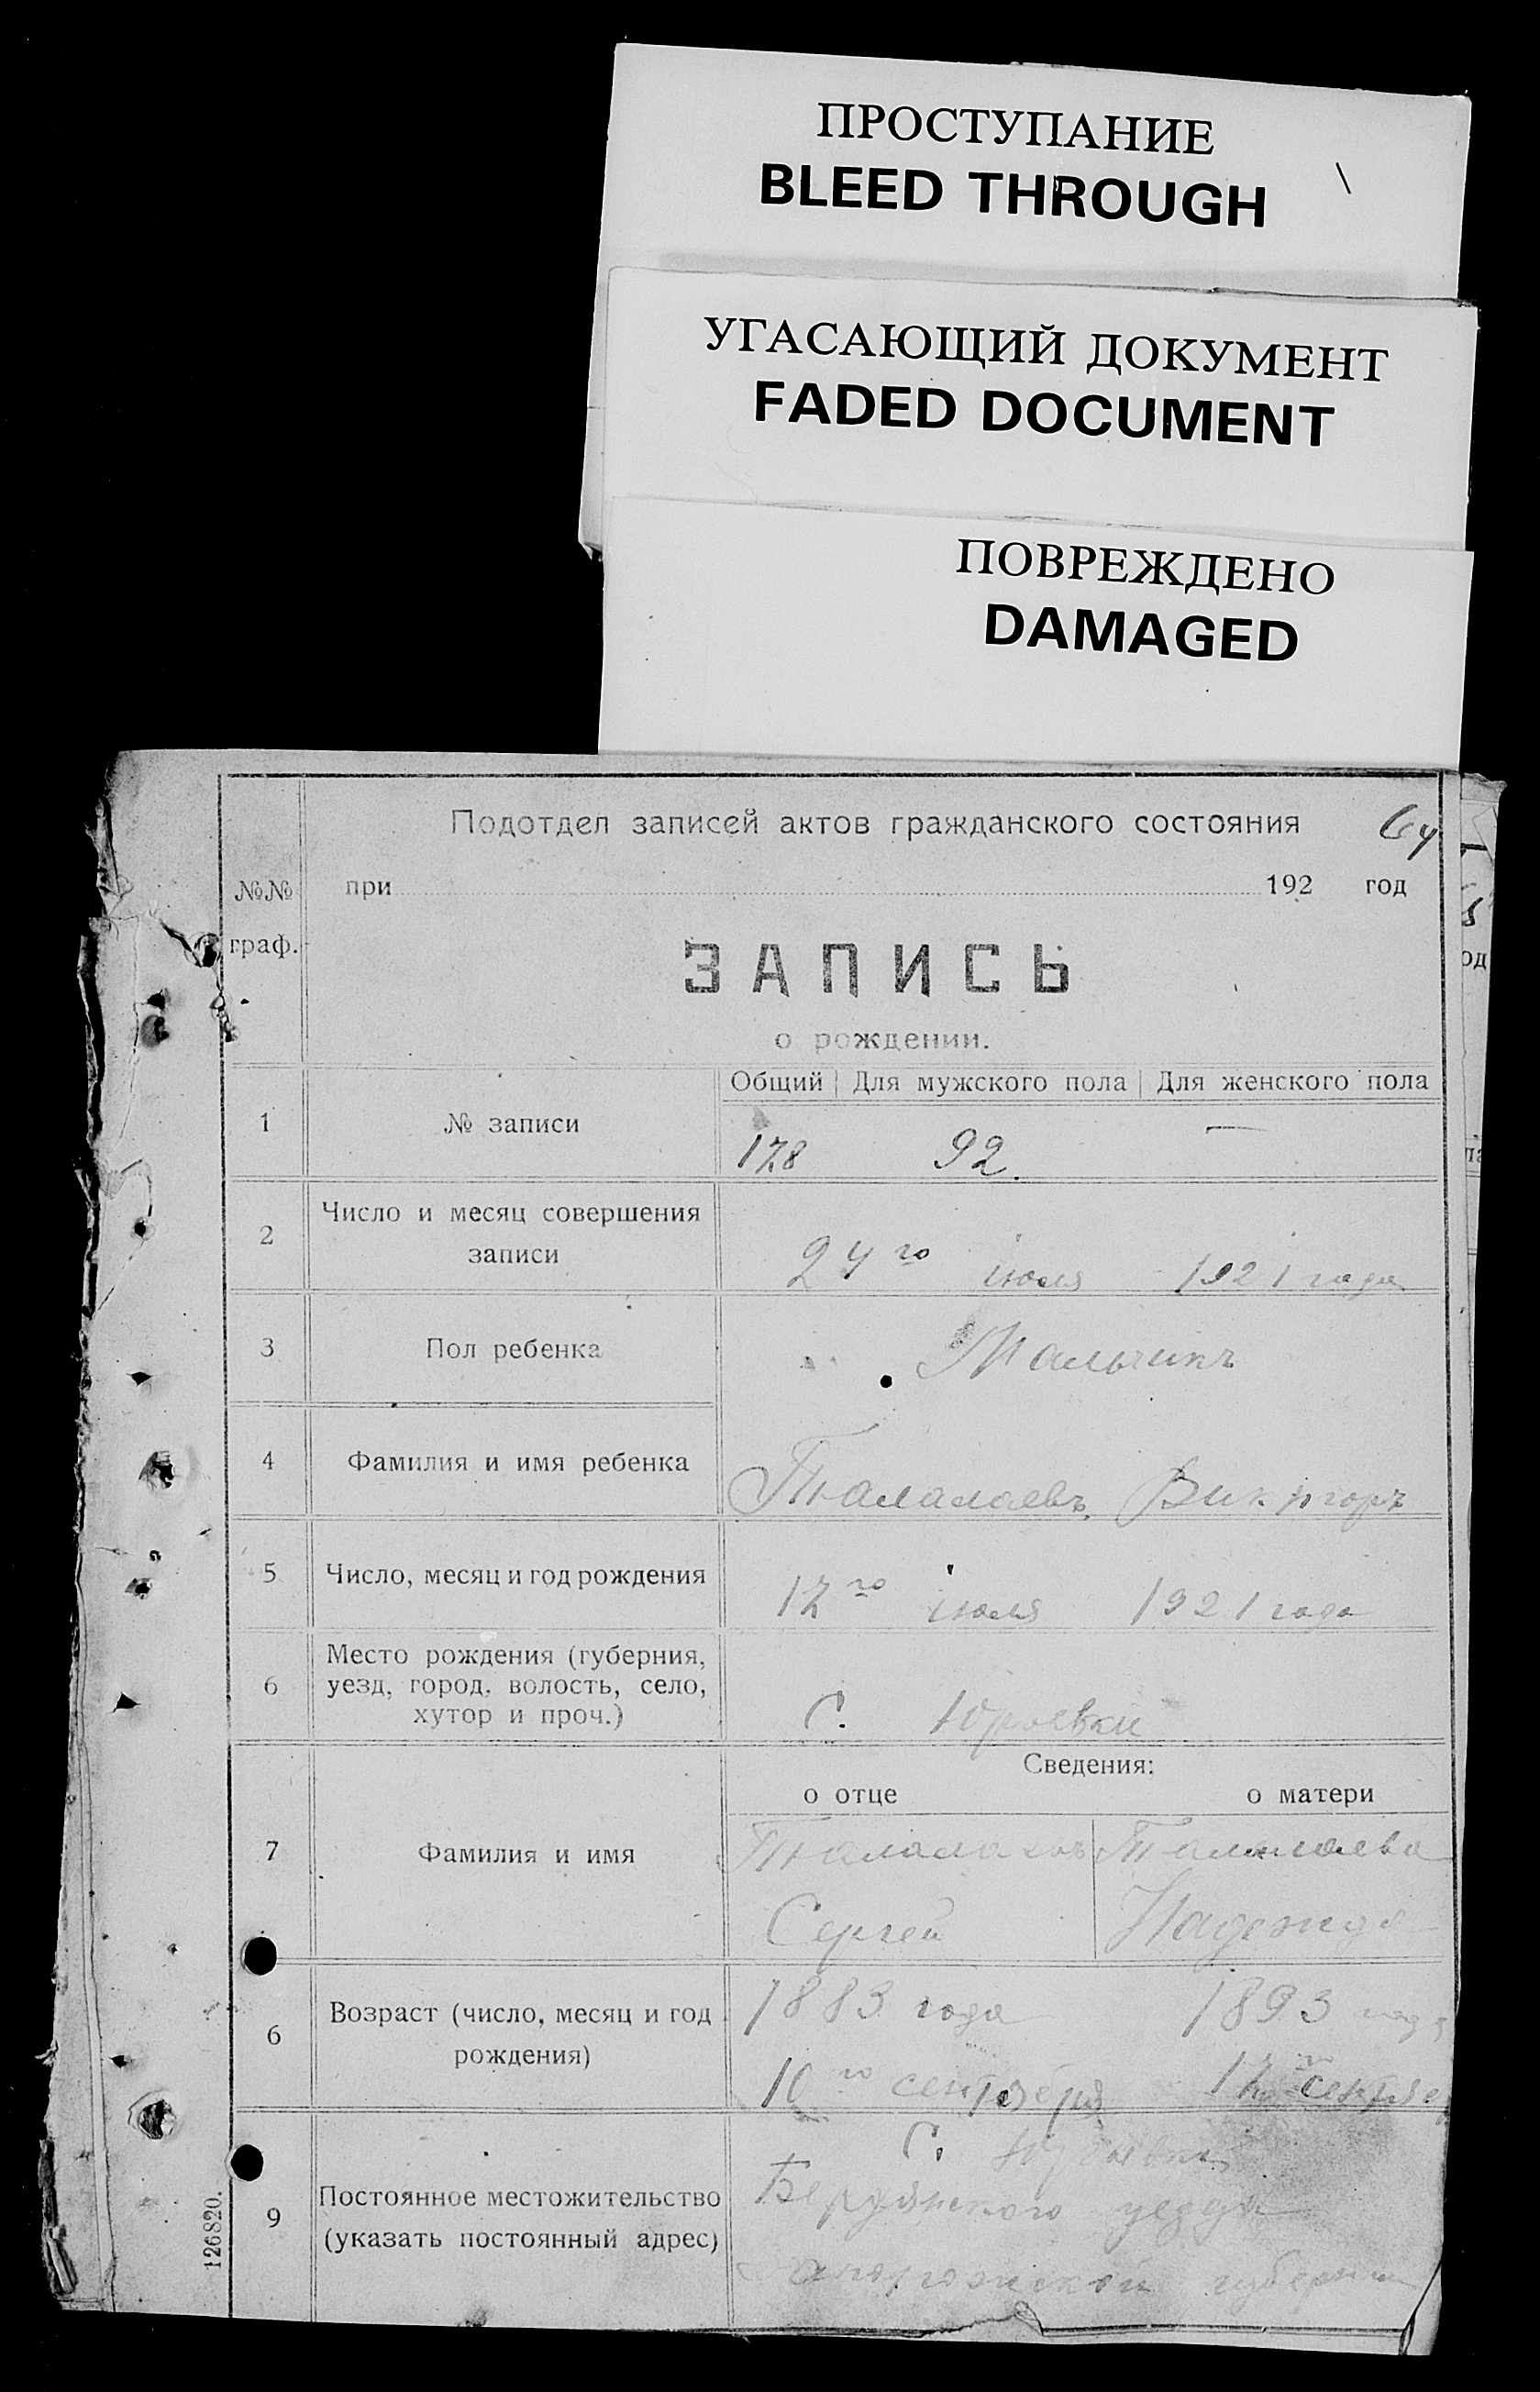 ПРОСТУПАНИЕ
BLEED THROUGH
УГАСАЮЩИЙ ДОКУМЕНТ
FADED DOCUMENT
ПОВРЕЖДЕНО
DAMAGED
Подотдел записей актов гражданского состояния
64
№№ граф.
при 192 год
ЗАПИСЬ
о рождении.
Общий Для мужского пола Для женского пола
1 № записи 178 92. —
2 Число и месяц совершения
записи
24го іюля 1921 года
3 Пол ребенка Мальчикъ
4 Фамилия и имя ребенка Талалаевъ Викторъ
5 Число, месяц и год рождения 17го іюля 1921 года
6 Место рождения (губерния,
уезд, город, волость, село,
хутор и проч.)
С. Юрьевки
Сведения:
о отце о матери
7 Фамилия и имя Талалаевъ Талалаева
Сергей Надежда
6 Возраст (число, месяц и год
рождения)
1883 года 1893 года
10го сентября 17го сентября
9 Постоянное местожительство
(указать постоянный адрес)
С. Юрьевки
Бердянского уезда
губернии
126820.